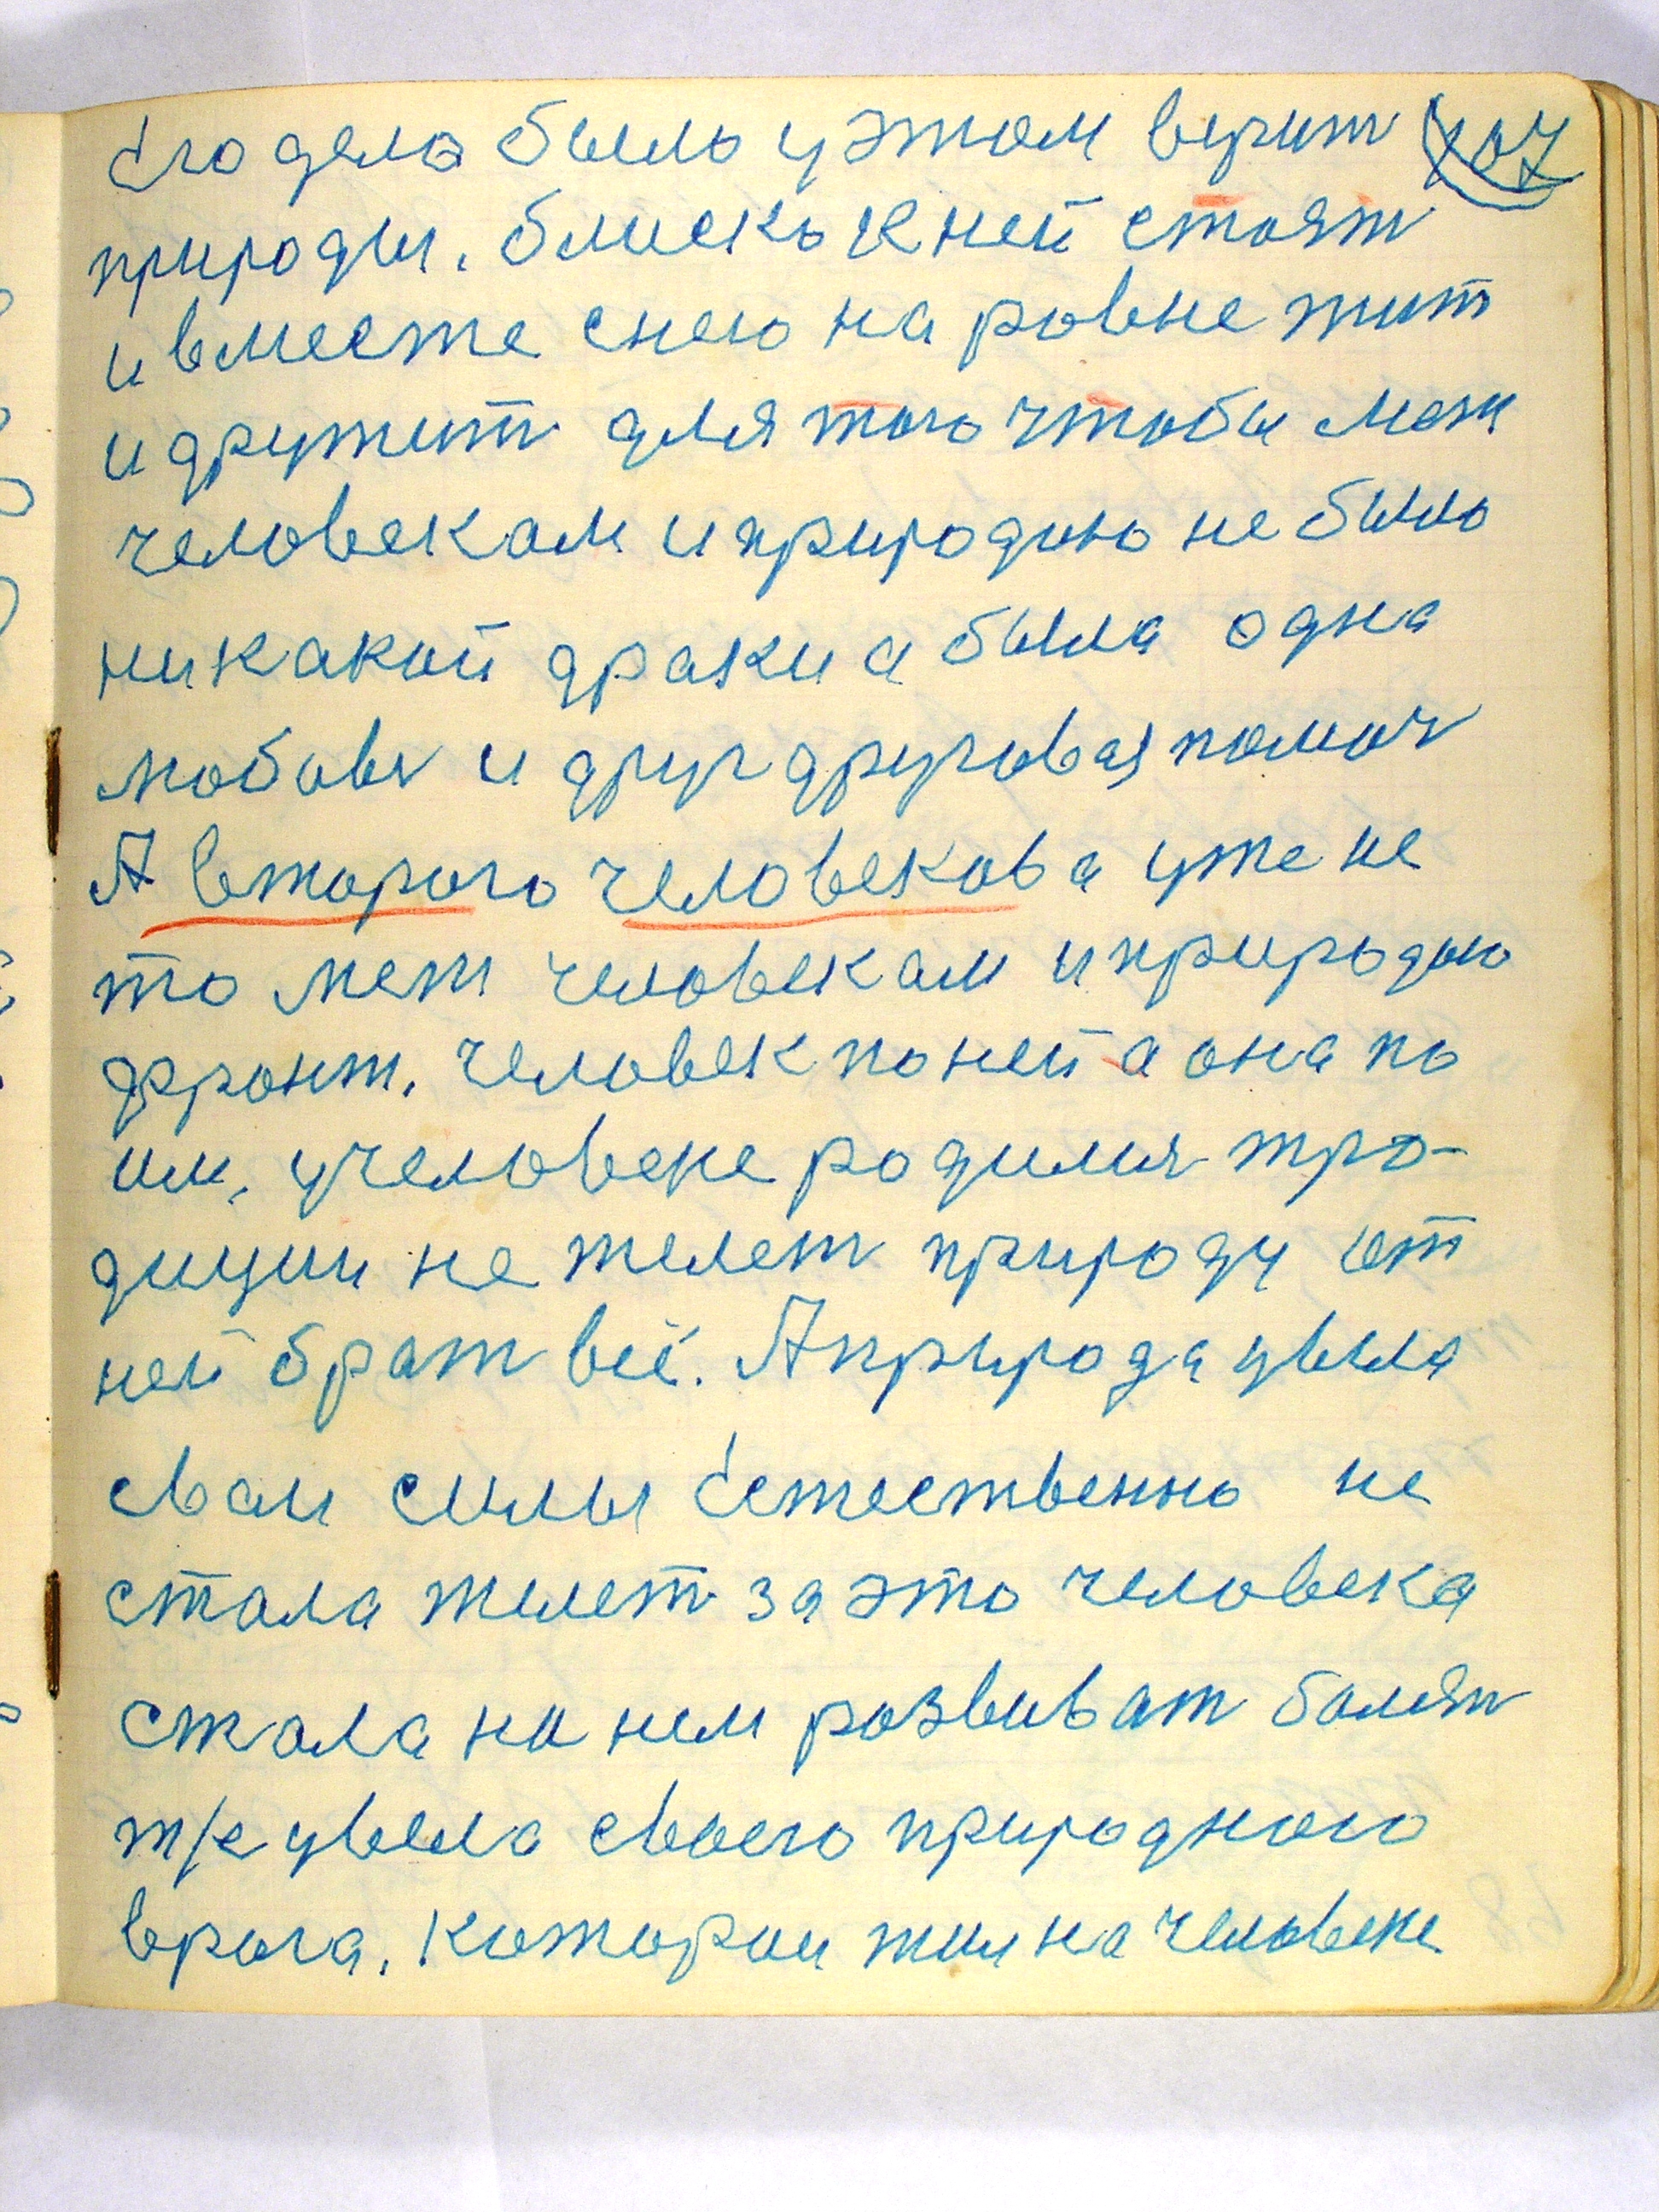 Его дело было у этом верит 107
природы. блиско к ней стоят
и вместе снею на ровне жит
и дружит для того чтобы меж
человекам и природою не было
ни какой драки а была одна
любовь и друг друговая помоч
А второго человекова уже не
то меж человекам и природою
фронт. человек по ней а она по
им, у человеке родилия тро-
диции не желет природу от
ней брат всё. А природа увела
сваи силы Естественно не
стала желет за это человека
стала на нем розвиват болят
т/к увела своего природного
врага. которои жил на человеке